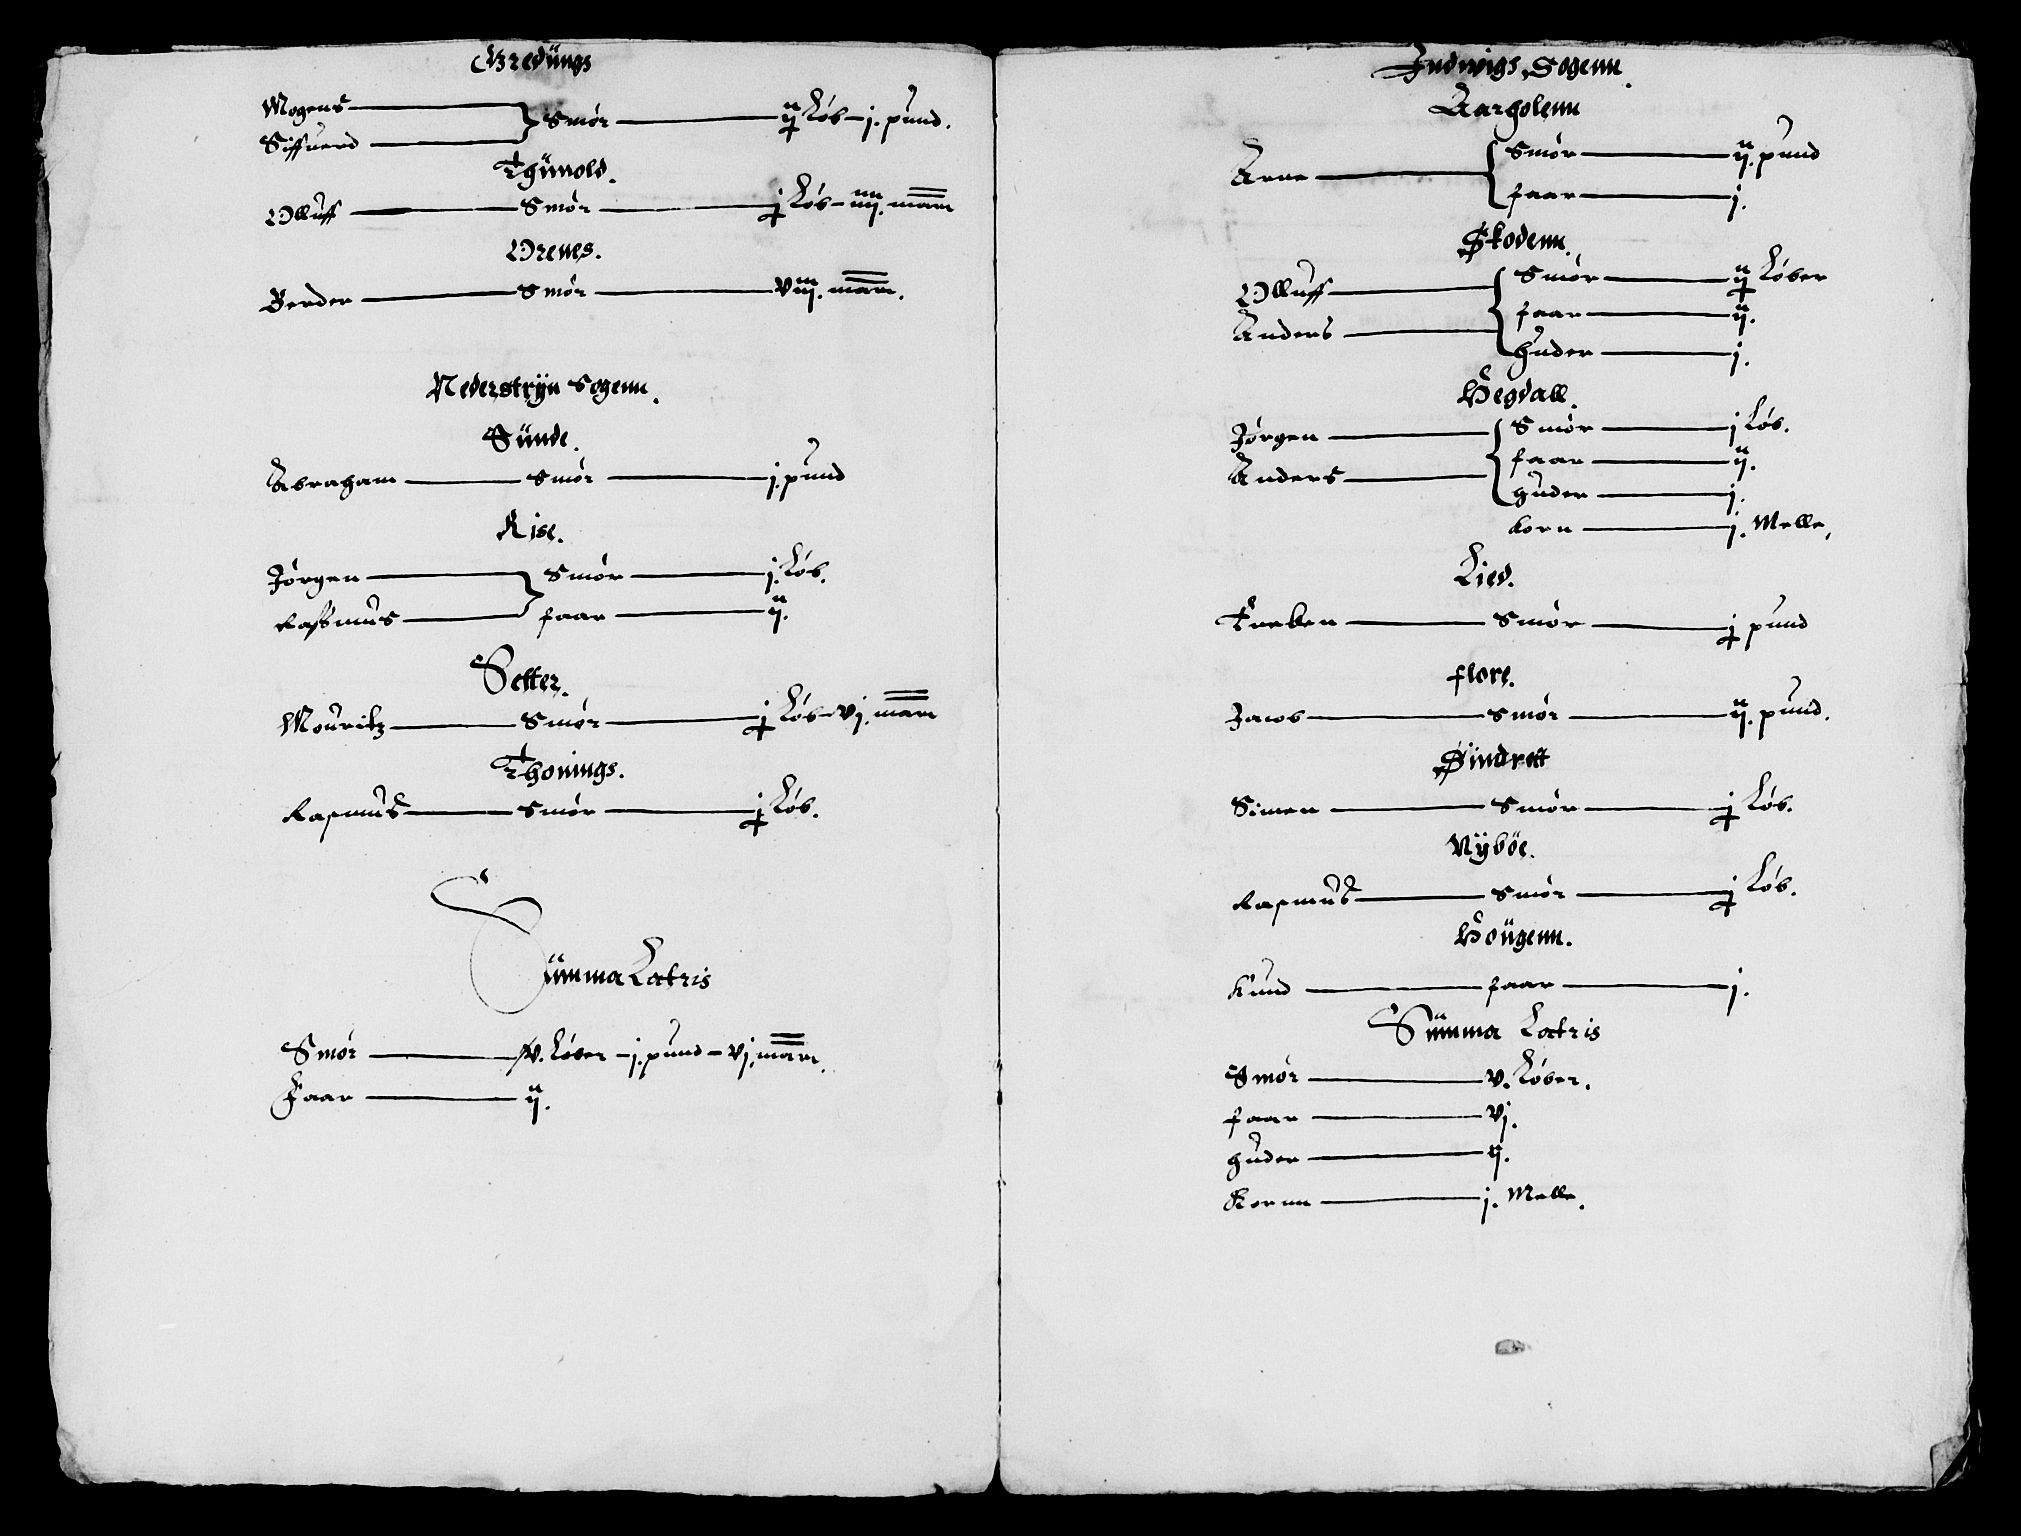 Gredüngs
Mogens
Siffuerd } Smør — ij Løb — j. pund.
Thünold.
Olluff — Smør — j Løb — iiij. mark
Drenes.
Perder — Smør — viij. mark.
Nederstrÿn Sogenn.
Sünde.
Abraham — Smør — j. pund
Rise.
Jørgen } Smør — j. Løb.
Rassmus } faar — ij.
Setter.
Mouritz — Smør — j Løb — vj. mark
Thonings.
Rasmus — Smør — j Løb.
Sümma Latris
Smør — v. Løber — j. pund — vj. mark.
Faar — ij.
Indwigs Sogenn.
Aarholenn
Arne { Smør — ij. pund
faar — j.
Skodenn.
Olluff { Smør — ij Løber
Anders { faar — ij.
huder — j.
Hegdall.
Jørgen { Smør — j Løb.
Anders { faar — ij.
huder — j.
korn — j. Melle.
Lied.
Treben — Smør — j pund
flore.
Jacob — Smør — ij. pund.
Sindrett
Simen — Smør — j Løb.
Nÿböe.
Rasmus — Smør — j Løb.
Hougenn.
Knud — faar — j.
Sümma Latris
Smør — v. Løber.
faar — vj.
huder — ij.
Kornn — j. Melle.